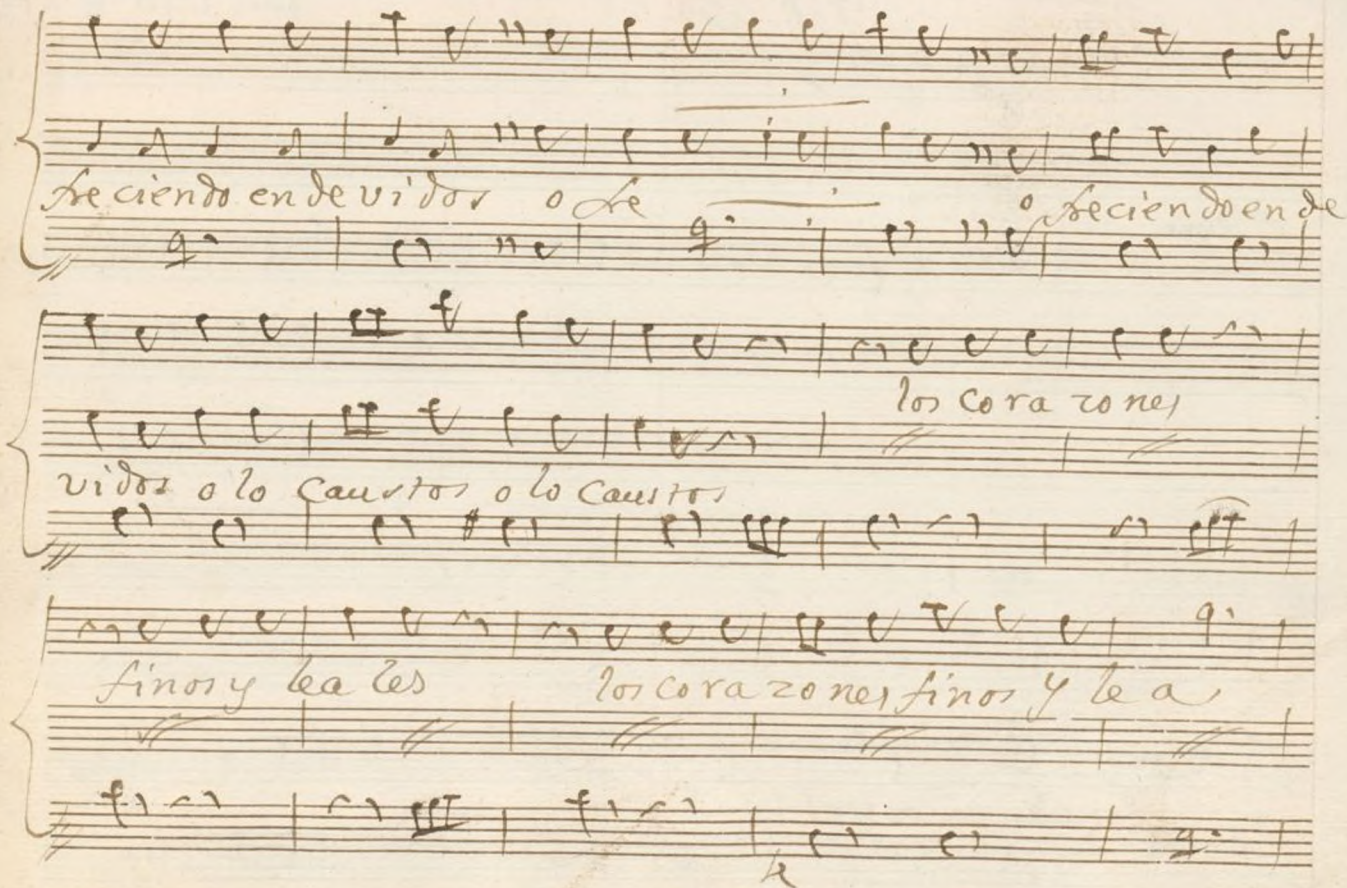 freciendo en de vidos o fre o freciendo en de
los cora zones
vidos o lo caustos o lo caustos
finos y lea les los cora zones finos y le a